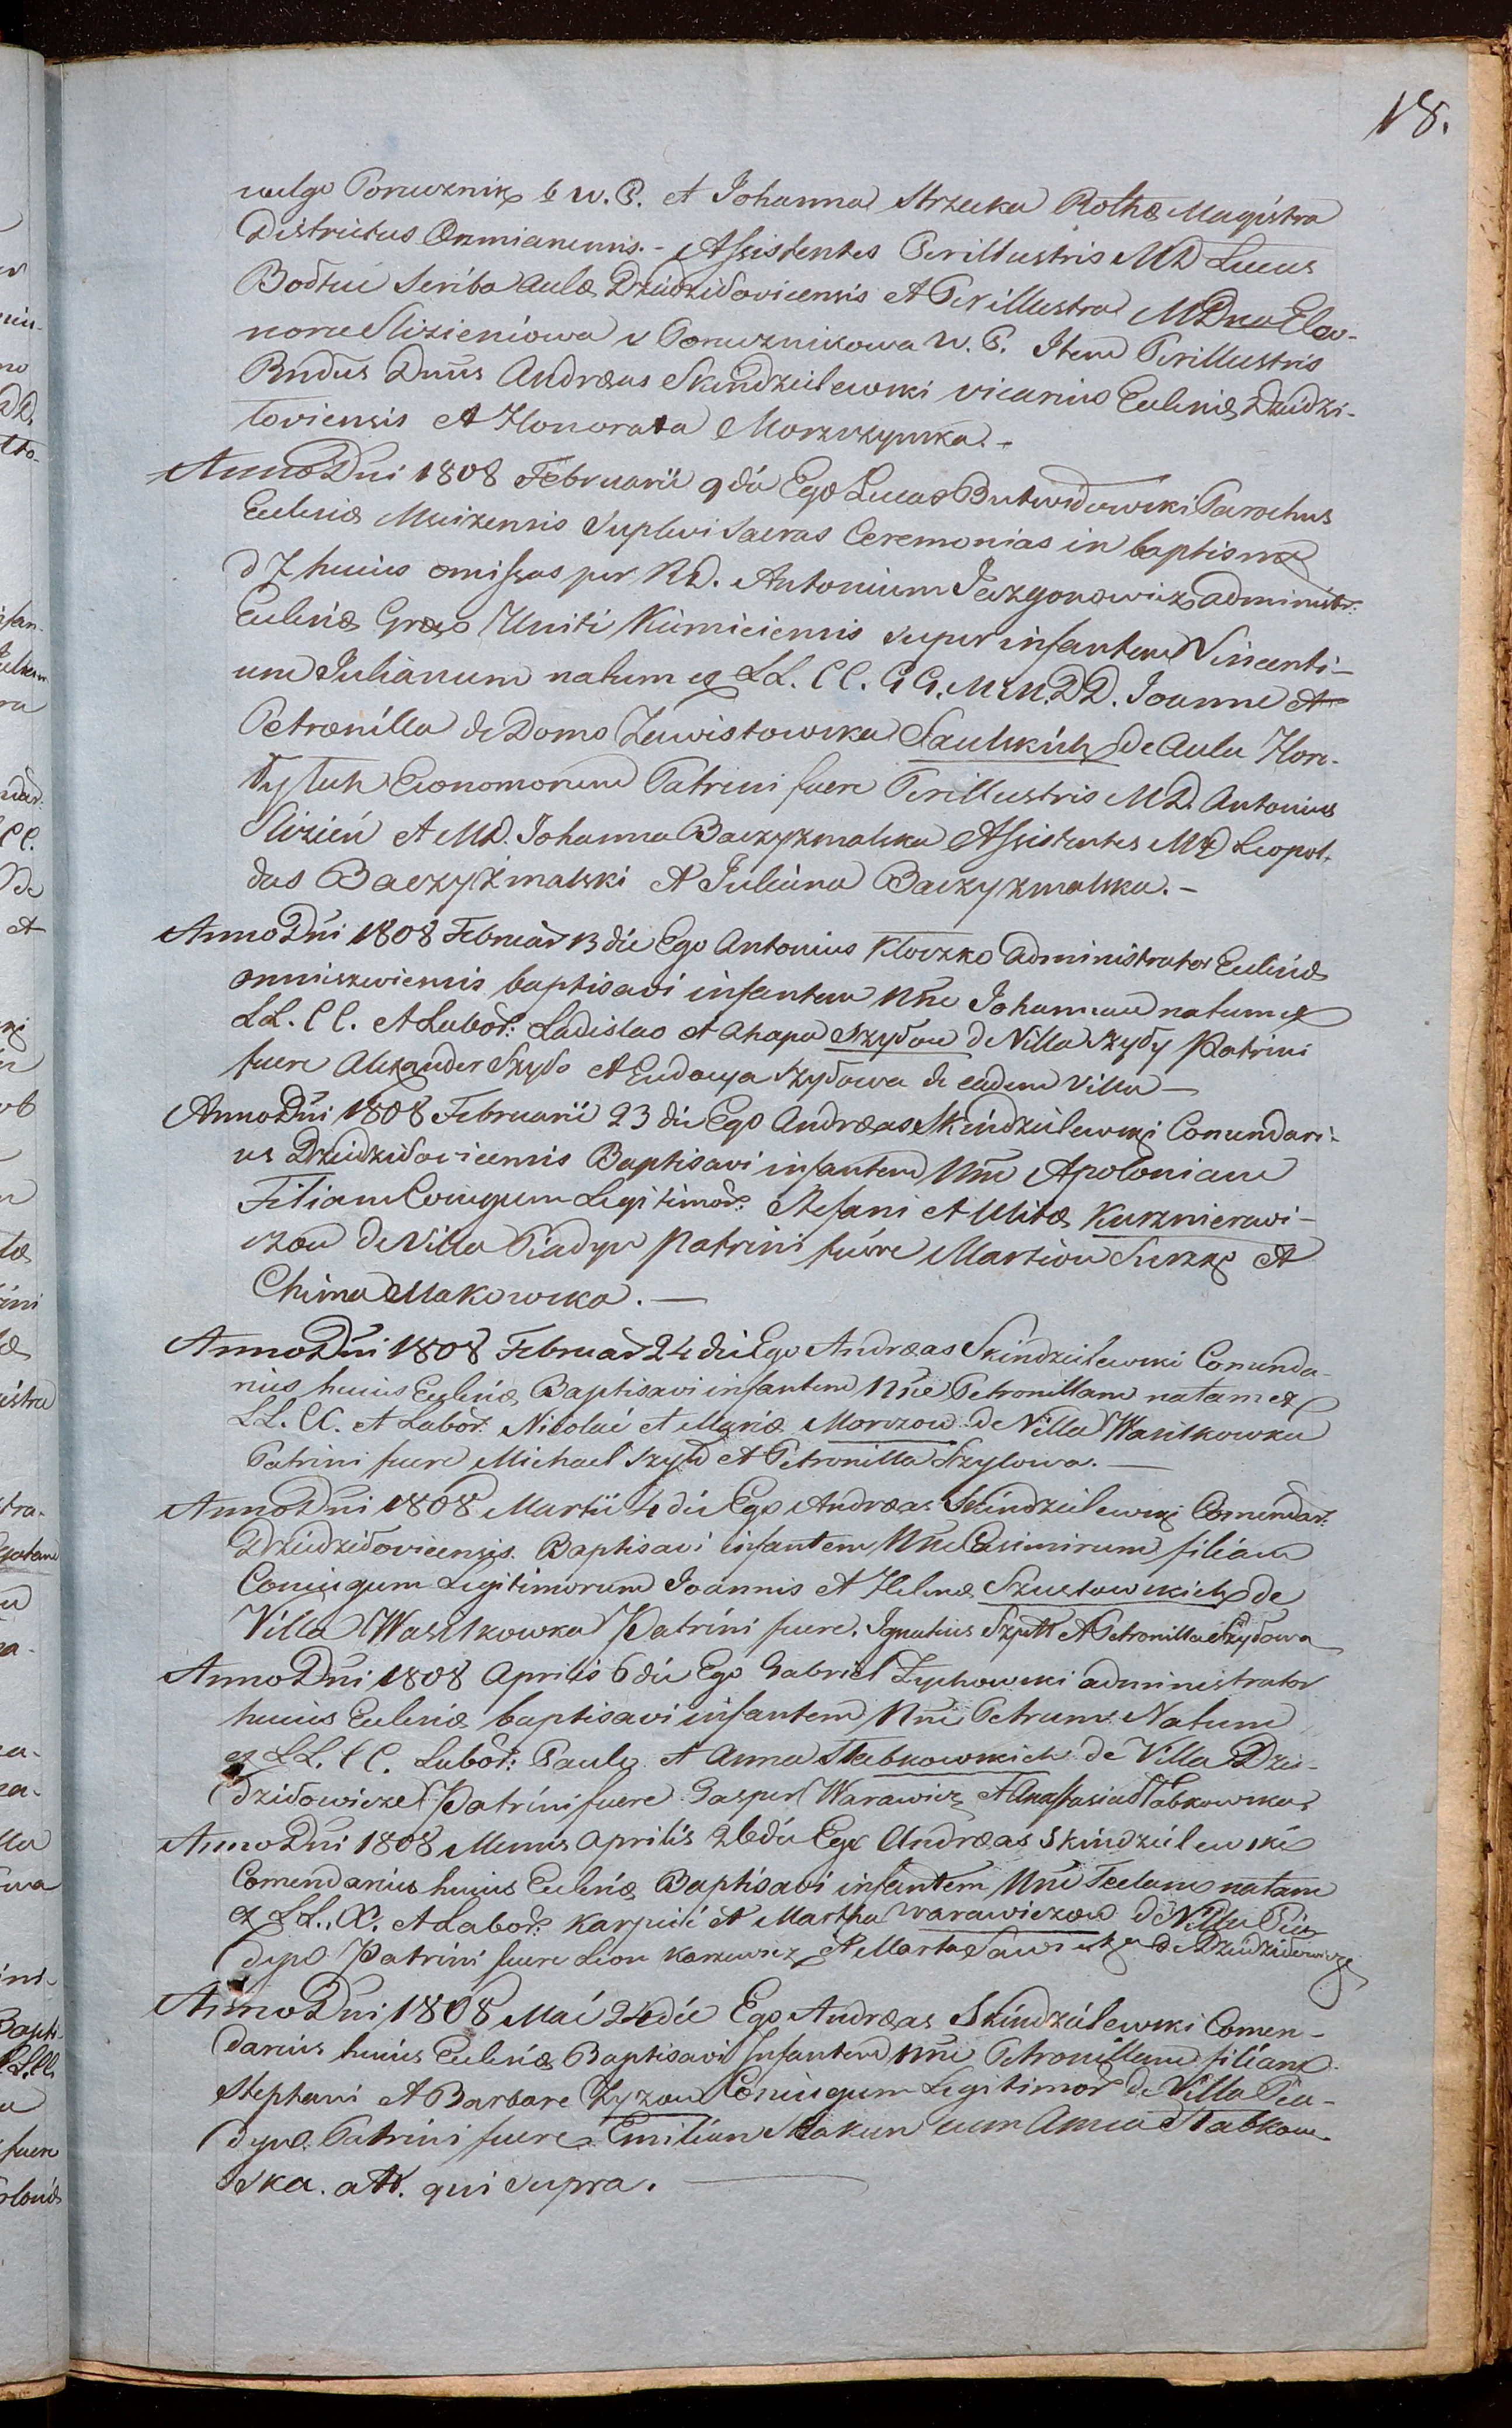 18.
vulgo Porucznik b W. P. et Johanna Strzecka Rothæ Magistra
Districtus Oxmianensis. - Assistentes Perillustris MD Lucas
Bodtuć Scriba aulæ Dziudzidovicensis et Perillustra MDna Eleo-
nora Slizieniowa v Porucznikowa W. P. Item Perillustris
Rndus Dnus Andræas Skindzielewski vicarius Eccl'iæ Dziudzi-
toviensis et Honorata Morzczynska. -
Anno Dni 1808 Februarii 9 die Ego Lucas Butwidowski Parochus
Eccl'iæ Mscizensis suplevi sacras Ceremonias in baptismo
d 7 huius omissas per RD. Antonium Jerzgonowicz administr:
Eccl'iæ Græco Uniti Kimiciensis super infantem Vincenti-
um Julianum natum ex LL. CC. GG. MM. DD. Joanne et
Petronilla de Domo Zawistowska Saulskich de Aula
Economorum Patrini fuere Perillustris MD. Antonius
Slizień et MD. Johanna Baczyzmalska Assistentes MD Leopol-
dus Baczyżmalski et Juliana Baczyzmalska. -
Anno Dni 1808 Februar 13 die Ego Antonius Kloczko administrator Eccl'iæ
omniszewiensis baptisavi infantem Nne Johannem natum ex
LL. CC. et Labor: Ladislao et Ahapa Szydou de Villa Szydy Patrini
fuere Alexander Szydo et Eudocya Szydowa de eadem Villa —
Anno Dni 1808 Februarii 23 die Ego Andræas Skindzielewski Comendari-
us Dziudzidovicensis Baptisavi infantem Nne Apoloniam
Filiam Coniugum Legitimor: Stefani et Ulitæ Kurznierowi-
czou de Villa Piadyn Patrini fuere Marzion Surzko et
Chima Makowska. —
Anno Dni 1808 Februar 24 die Ego Andræas Skindzielewski Comenda-
rius huius Eccl'iæ Baptisavi infantem Nne Petronillam natam ex
LL. CC. et Labor: Nicolai et Mariæ Morozow de Villa Wasilkowka
Patrini fuere Michael Szydo et Petronilla Szylowa. —
Anno Dni 1808 Martii 4 die Ego Andræas Skindzielewski Comendar:
Dziudzidovicensis Baptisavi infantem Nne Casimirum filiam
Coniugum Legitimorum Joannis et Helenæ Szustowskich de
Villa Wasilkowka Patrini fuere. Ignatius et Petronilla Szydowa
Anno Dni 1808 Aprilis 6 die Ego Gabriel Zychowski administrator
huius Eccl'iæ baptisavi infantem Nne Petrum Natum
ex LL. CC. Labor: Paulo et Anna Stabkowskich de Villa Dziu-
dzidowicze Patrini fuere Gasper Warawicz et Anastasia Stabkowska
Anno Dni 1808 Mensis Aprilis 26 die Ego Andræas Skindzielewski
Comendarius huius Eccl'iæ Baptisavi infantem Nne Teclam natam
ex LL. CC. et Labor: Karpieie et Martha Warawiczow de Villa Pia-
dyn Patrini fuere Leon Karzewicz et Marta de Dziudzidowicze
Anno Dni 1808 Mai 24 die Ego Andræas Skindzielewski Comen-
darius huius Eccl'iæ Baptisavi Infantem Nne Petronillam filiam
Stephani et Barbare Zyzow Coniugum Legitimor de Villa Pia-
dyn Patrini fuere Emilian Makun cum Anna Stabkow-
ska. att. qui supra. —